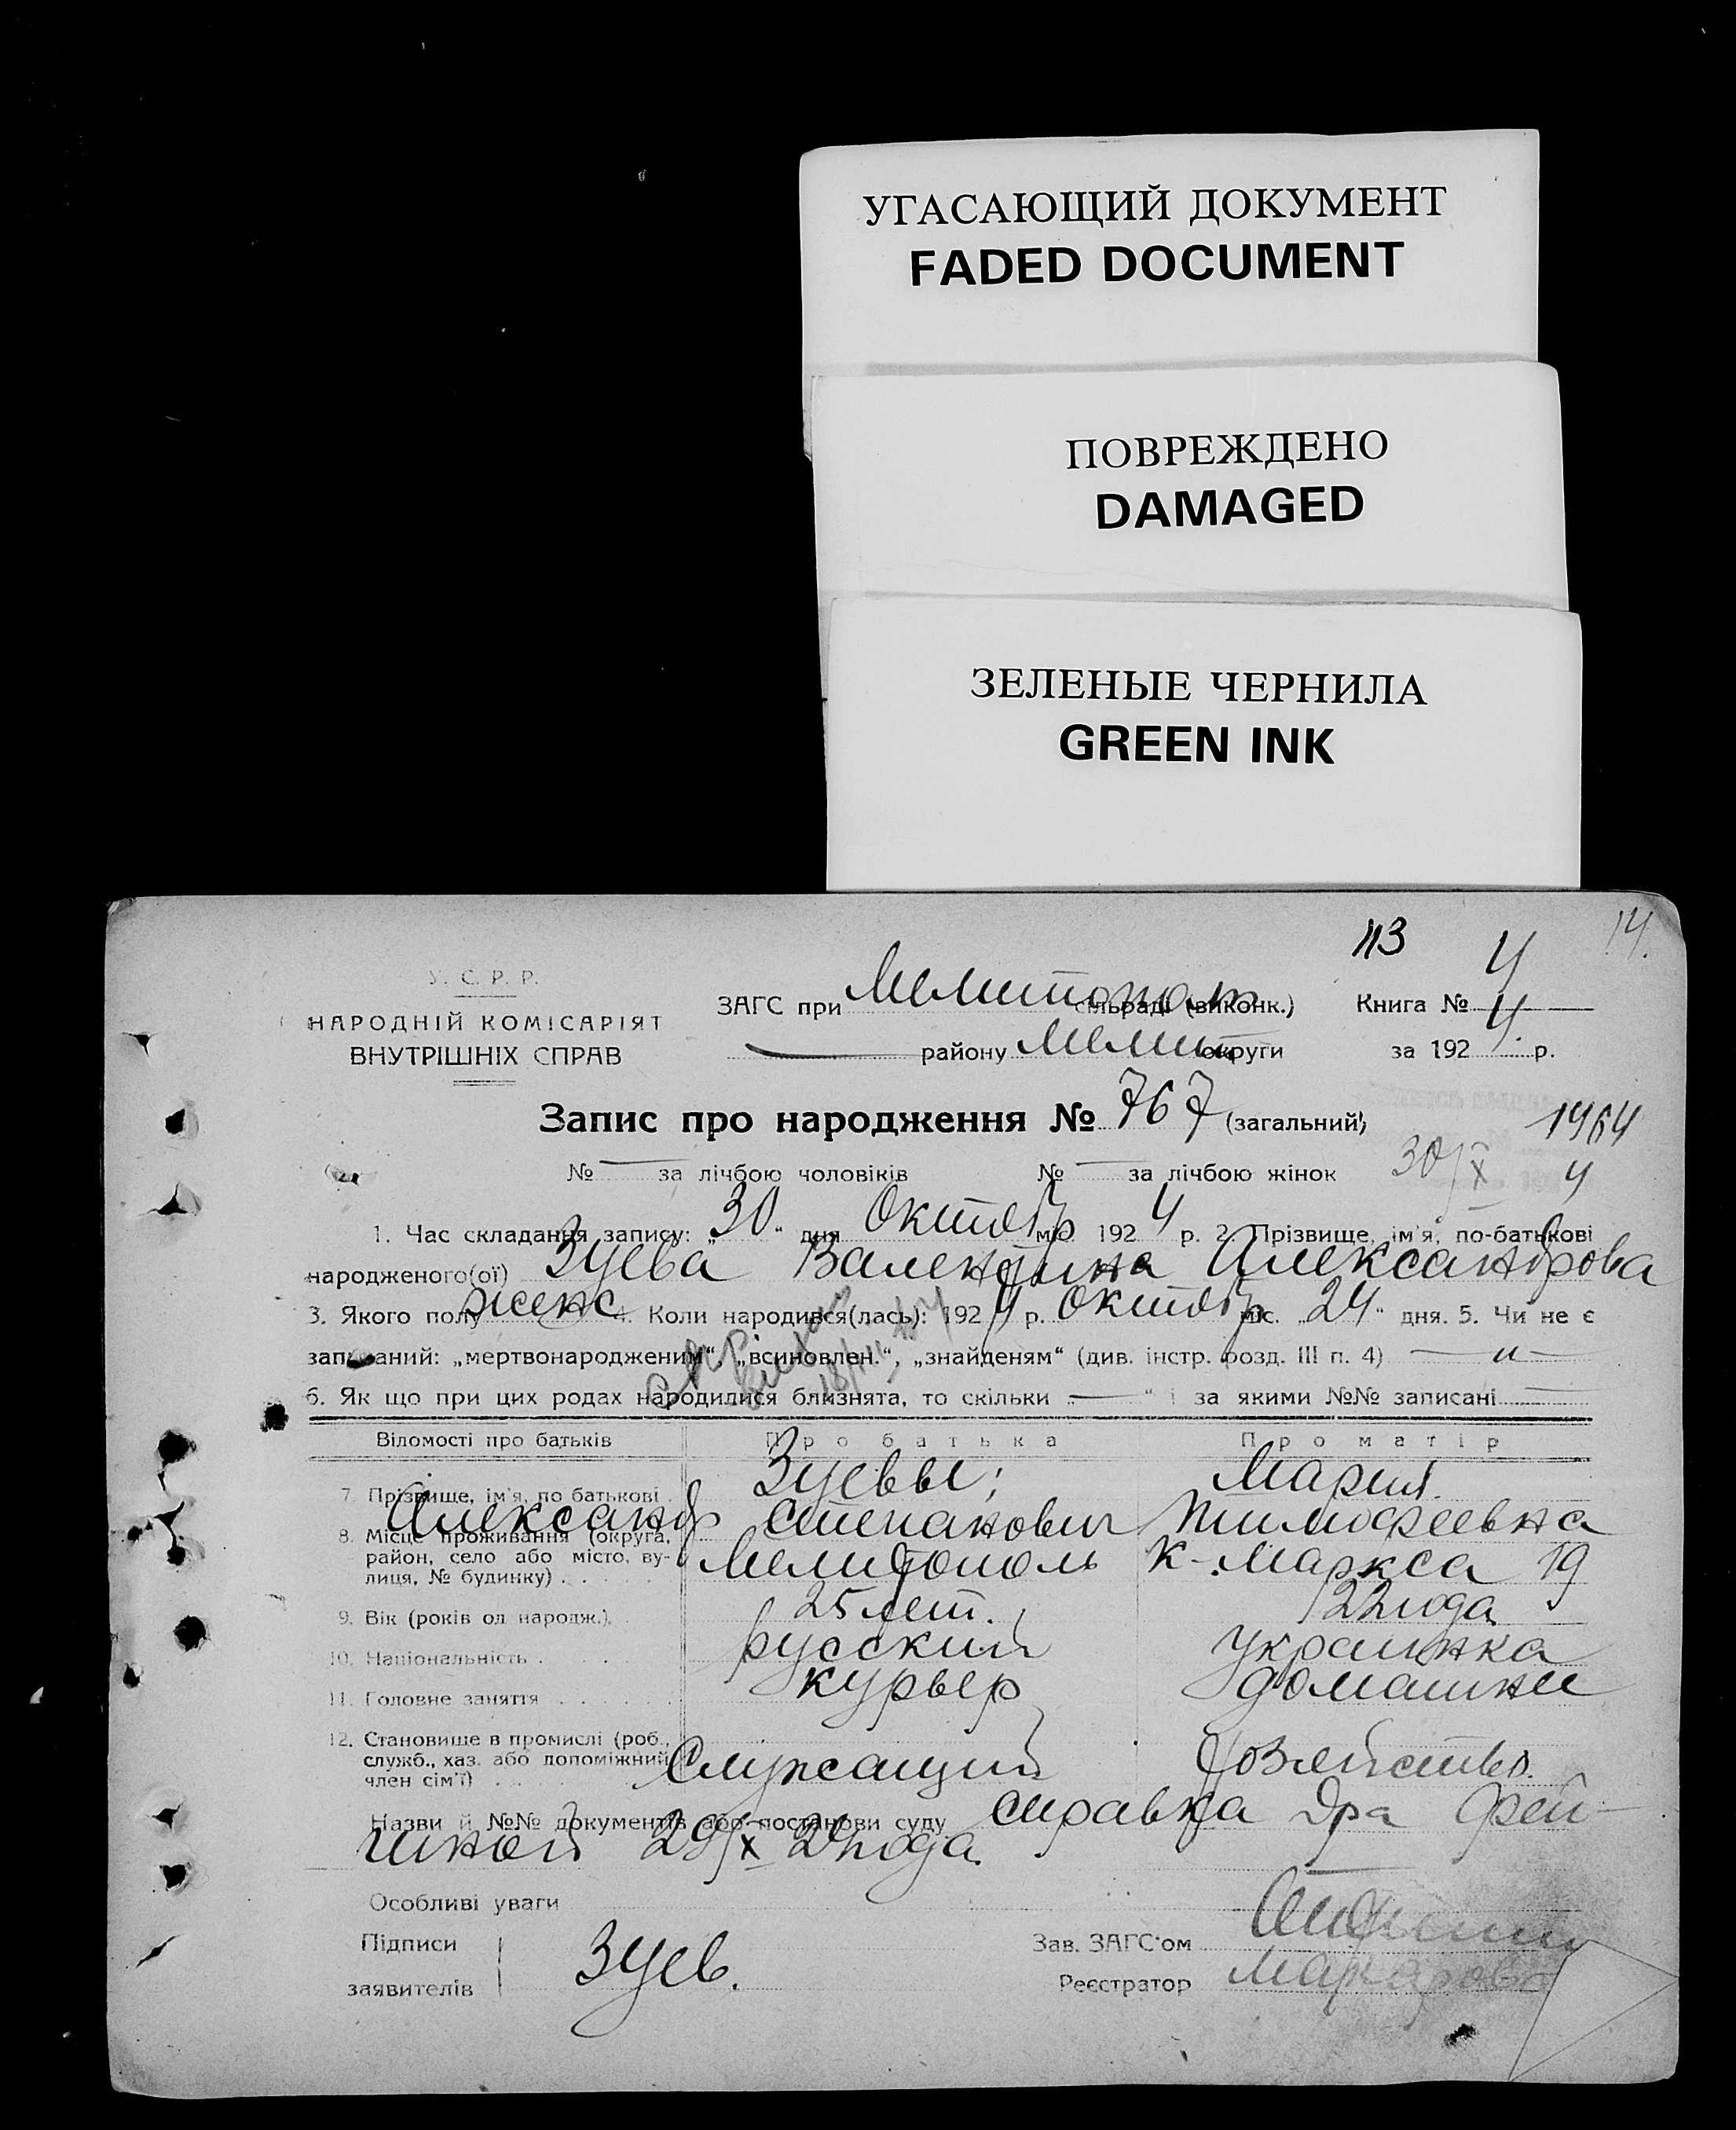 УГАСАЮЩИЙ ДОКУМЕНТ
FADED DOCUMENT
ПОВРЕЖДЕНО
DAMAGED
ЗЕЛЕНЫЕ ЧЕРНИЛА
GREEN INK
113 14.
У. С. Р. Р.
НАРОДНІЙ КОМІСАРІЯТ
ВНУТРІШНІХ СПРАВ
ЗАГС при Мелитополь сільраді (виконк.) Книга № 4
— району Мелит округи за 192 4. р.
Запис про народження № 767 (загальний)
1964
№ — за лічбою чоловіків № — за лічбою жінок 30/X 4
1. Час складання запису: „30“ дня Октябр міс. 192 4 р. 2. Прізвище, ім'я, по-батькові
народженого(ої) Зуева Валентина Александрова
3. Якого полу женс 4. Коли народився(лась): 192 4 р. Октябр міс. „24“ дня. 5. Чи не є
записаний: „мертвонародженим“, „всиновлен.“, „знайденям“ (див. інстр. розд. III п. 4) — „ —
6. Як що при цих родах народилися близнята, то скільки „—“ і за якими №№ записані —
Відомості про батьків Про батька Про матір
7. Прізвище, ім'я, по батькові Зуевы; Мария.
Александр Степанович Тимофеевна
8. Місце проживання (округа, район, село або місто, вулиця, № будинку) Мелитополь К-Маркса 19
9. Вік (років од народж.) 25 лет. 22 года
10. Національність русский украинка
11. Головне заняття курьер домашнее
12. Становище в промислі (роб., служб., хаз. або допоміжний член сім'ї) Служащий хозяйство.
Назви й №№ документів або постанови суду справка Дра Фей-
гиной 29/X 24 года
Особливі уваги
Підписи заявителів Зуев.
Зав. ЗАГС'ом
Реєстратор Макарова